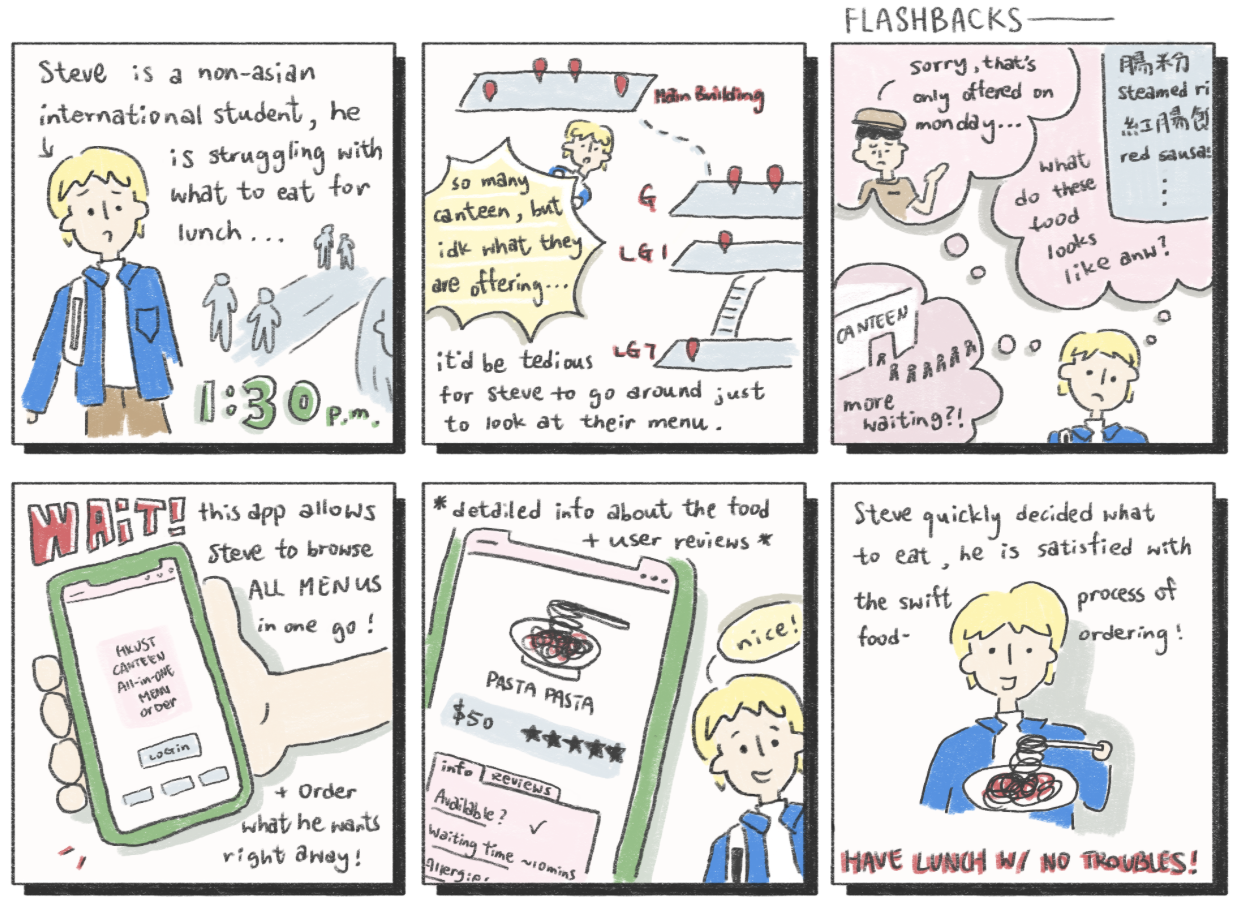 FLASHBACKS
Steve is a non-asian
international student, he
is struggling with
what to eat for
lunch...
1:30 p.m.
Main Building
so many
canteen, but
idk what they
are offering...
G
LG1
LG7
it'd be tedious
for Steve to go around just
to look at their menu.
sorry, that's
only offered on
monday...
腸粉
steamed ri
紅腸飯
red sausa
what
do these
food
looks
like anw?
CANTEEN
more
waiting?!
WAIT!
this app allows
Steve to browse
ALL MENUS
in one go!
HKUST
CANTEEN
All-in-ONE
MENU
order
LOGIN
+ order
what he wants
right away!
*detailed info about the food
+ user reviews*
PASTA PASTA
$50 ★★★★★
info
reviews
Available? ✓
Waiting time ~10mins
Allergie
nice!
Steve quickly decided what
to eat, he is satisfied with
the swift process of
food-ordering!
HAVE LUNCH W/ NO TROUBLES!